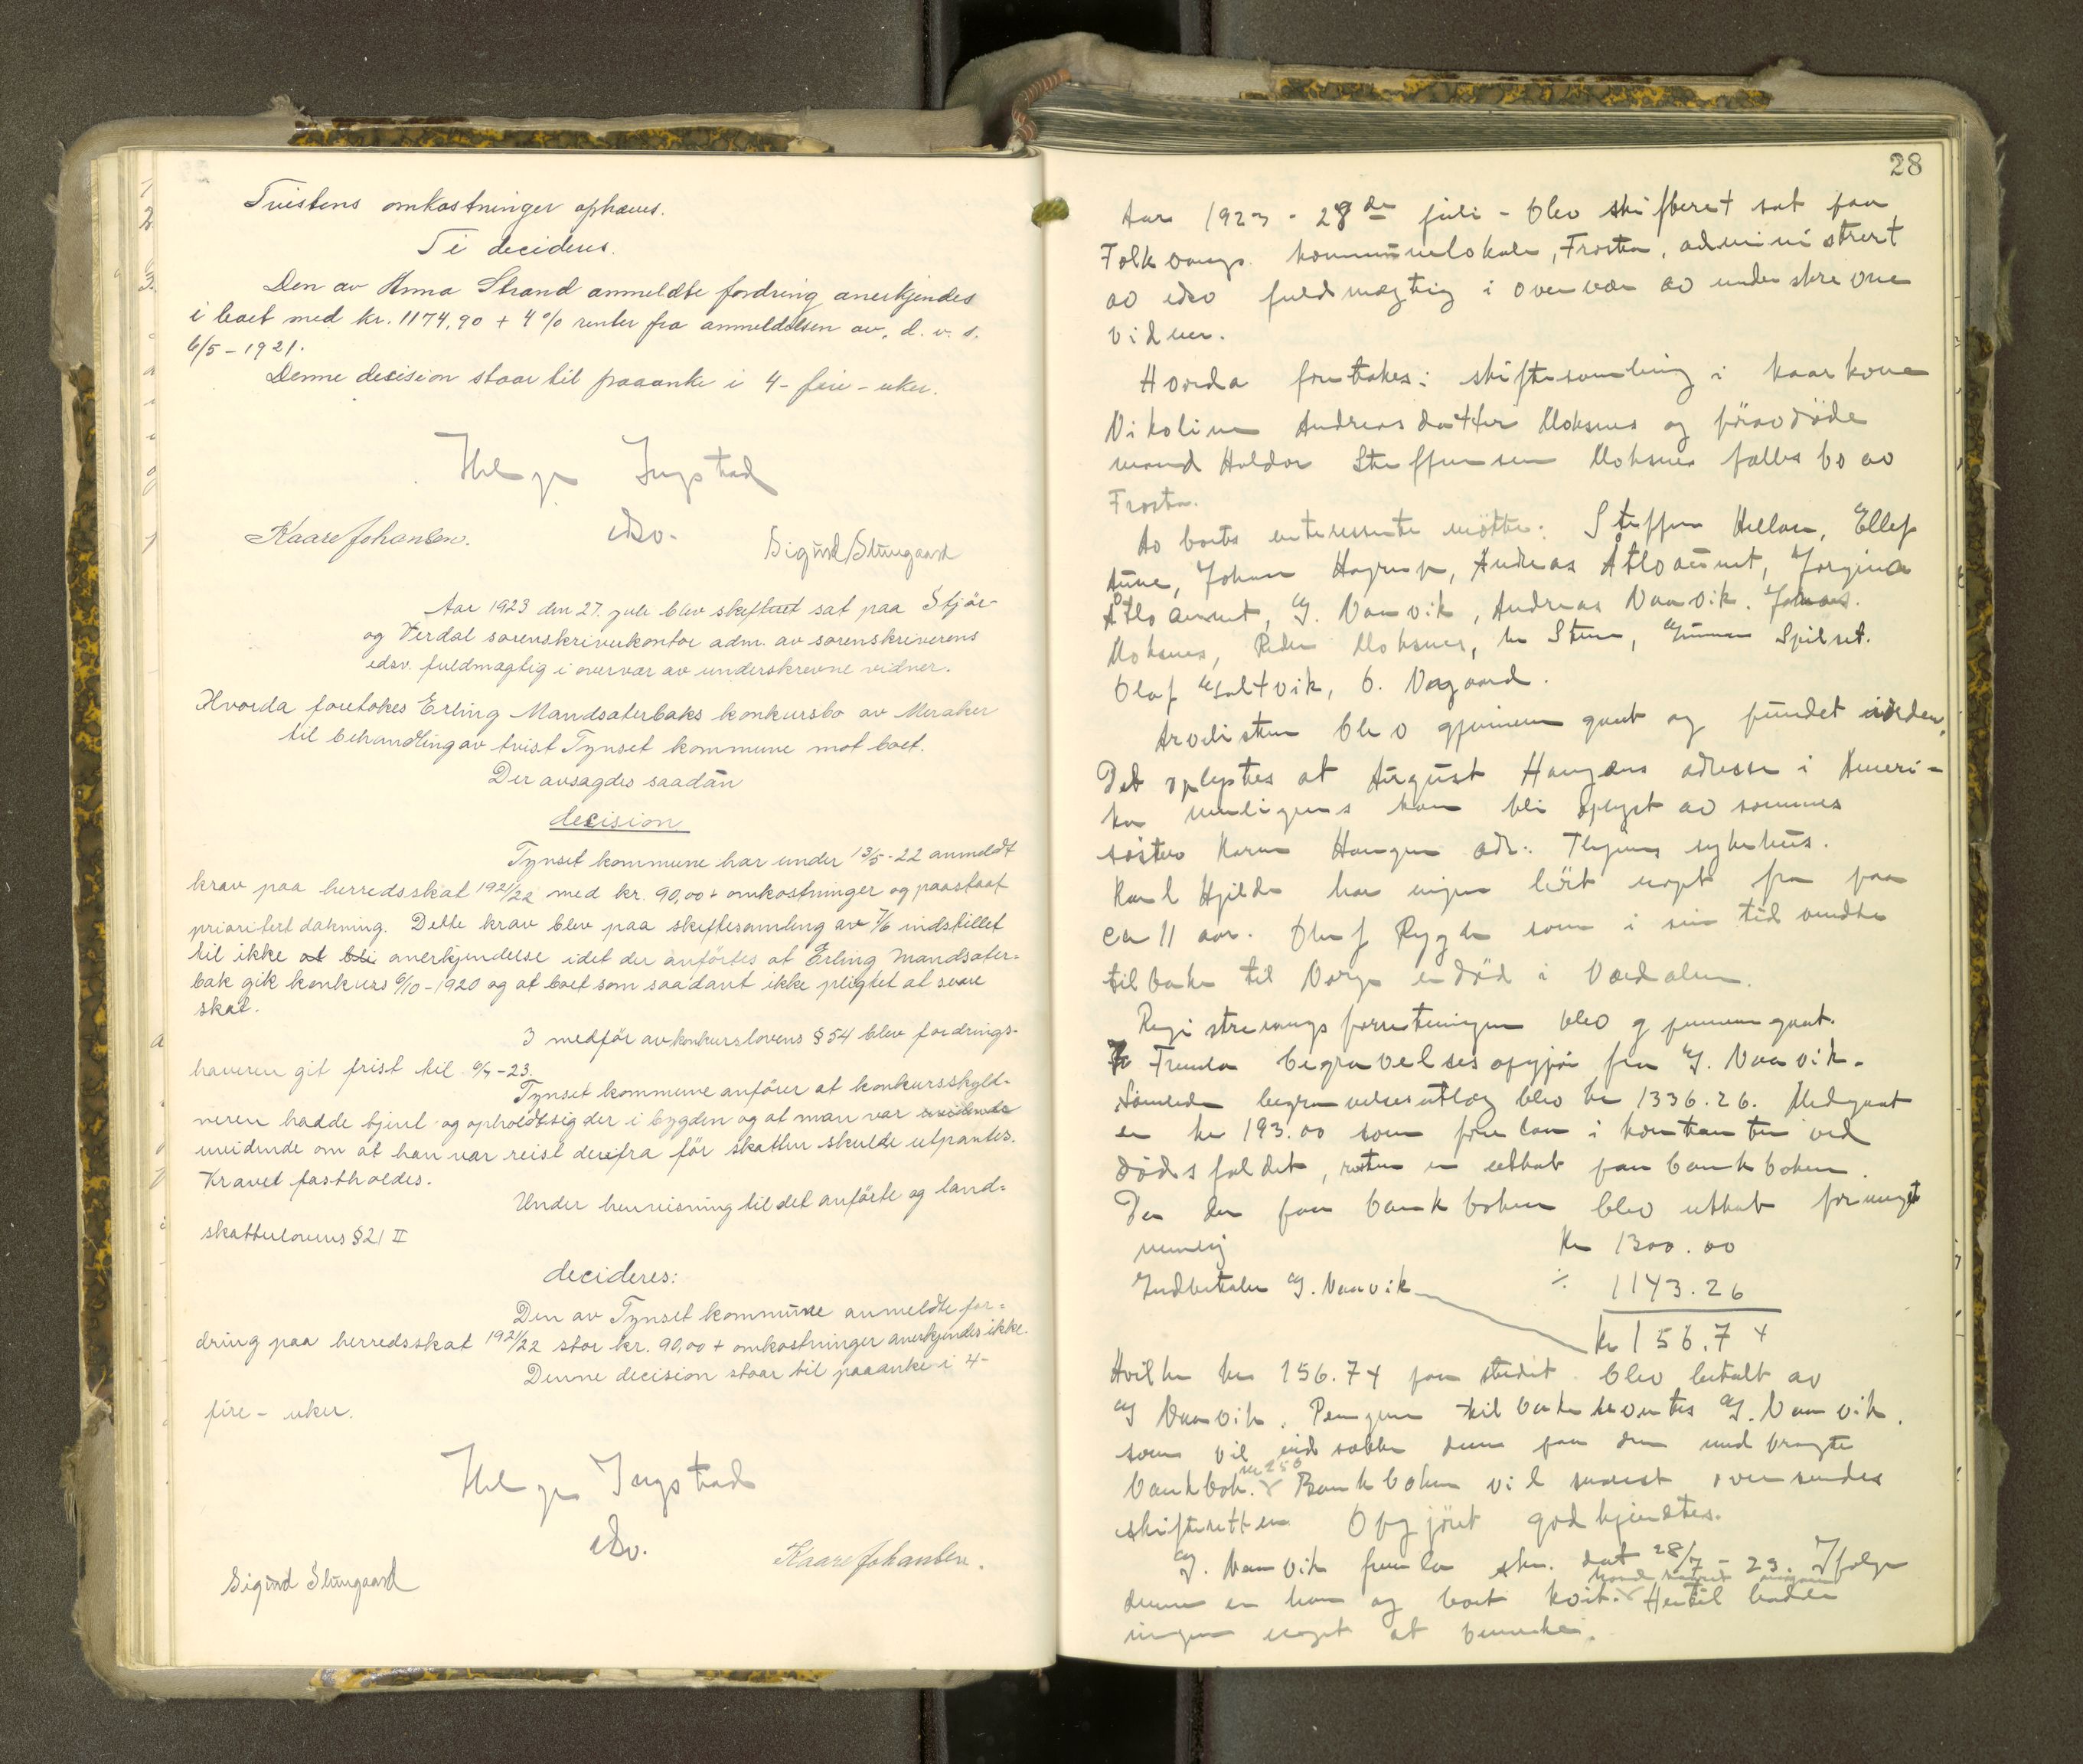 Tvistens omkostninger ophæves.
Ti decideres.
Den av Anna Strand anmeldte fordring anerkjendes
i boet med kr. 1174,90 + 4% renter fra anmeldelsen av, d. v. s.
6/5-1921.
Denne decision staar til paaanke i 4- fire - uker.
Helge Ingstad
edsv.
Kaare Johansen.
Sigurd Stungaard
Aar 1923 den 27. juli blev skifteret sat paa Stjør-
og Verdal sorenskriverkontor adm. av sorenskriverens
edsv. fuldmægtig i overvær av underskrevne vidner.
Hvorda foretokes Erling Mandsæterbaks konkursbo av Meraker
til behandling av tvist Tynset kommune mot boet.
Der avsagdes saadan
decision
Tynset kommune har under 13/5-22 anmeldt
krav paa herredsskat 1921/22 med kr. 90,00 + omkostninger og paastaat
prioritert dækning. Dette krav blev paa skiftesamling av 7/6 indstillet
til ikke at bli anerkjendelse idet der anførtes at Erling Mandsæter-
bak gik konkurs 6/10-1920 og at boet som saadant ikke pligtet at svare
skat.
I medfør av konkurslovens § 54 blev fordrings-
haveren git frist til 6/7-23.
Tynset kommune anfører at konkursskyld-
neren hadde tjent og opholdt sig der i bygden og at man var uvidende
uvidende om at han var reist derfra før skatten skulde utpantes.
Kravet fastholdes.
Under henvisning til det anførte og land-
skattelovens § 21 II
decideres:
Den av Tynset kommune anmeldte for-
dring paa herredsskat 1921/22 stor kr. 90,00 + omkostninger anerkjendes ikke.
Denne decision staar til paaanke i 4-
fire - uker.
Helge Ingstad
edsv.
Kaare Johansen.
Sigurd Stungaard
28
Aar 1923 - 28de juli - blev skifteret sat paa
Folkvangs kommunelokale, Frosta, administrert
av edsv fuldmægtig i overvær av underskrevne
vidner.
Hvorda foretokes: skiftesamling i kaarkone
Nikoline Andreasdatter Moksnes og føravdøde
mand Haldor Steffensen Moksnes fælles bo av
Frosta.
Av boets interessenter møtte: Steffen Hellan, Ellef
Aune, Johan Hagrup, Andreas Åtloaunet, Jorgina
Åtloaunet, G. Naavik, Andreas Naavik. Johans.
Moksnes, Peder Moksnes, Gunnar Spilset.
Olaf Saltvik, O. Nøgaard.
Arvelisten blev gjennemgaat og fundet i orden,
Det oplystes at August Haugens adresse i Ameri-
ka muligens kan bli oplyst av sammes
søster Karen Haugen adr.: Theings sykehus.
Karl Hjelde har ingen hørt noget fra paa
ca 11 aar. Oluf Rygg som i sin tid vendte
tilbake til Norge er død i Værdalen.
Registreringsforretningen blev gjennemgaat.
Fremla begravelsesopgjør fra G. Naavik.
Samlede begravelsesutlæg blev kr 1336.26. Medgaat
er kr 193.00 som forelaa i kontanter ved
dødsfaldet, resten er uthat paa bankboken.
Da der paa bankboken blev uthat formeget
nemlig kr 1300.00
Indbetaler G. Naavik ÷ 1143.26
kr 156.74
Hvilke kr 156.74 paa stedet blev betalt av
G Naavik. Pengene tilbakeleveredes G. Naavik.
som vil indsætte dem paa den medbragte
bankbok. nr 256 Bankboken vil snarest oversendes
skifteretten Opgjøret godkjendtes.
G. Naavik fremla skr. dat 28/7-23. Ifølge
denne er han og boet kvit. Hertil hadde
ingen noget at bemerke.